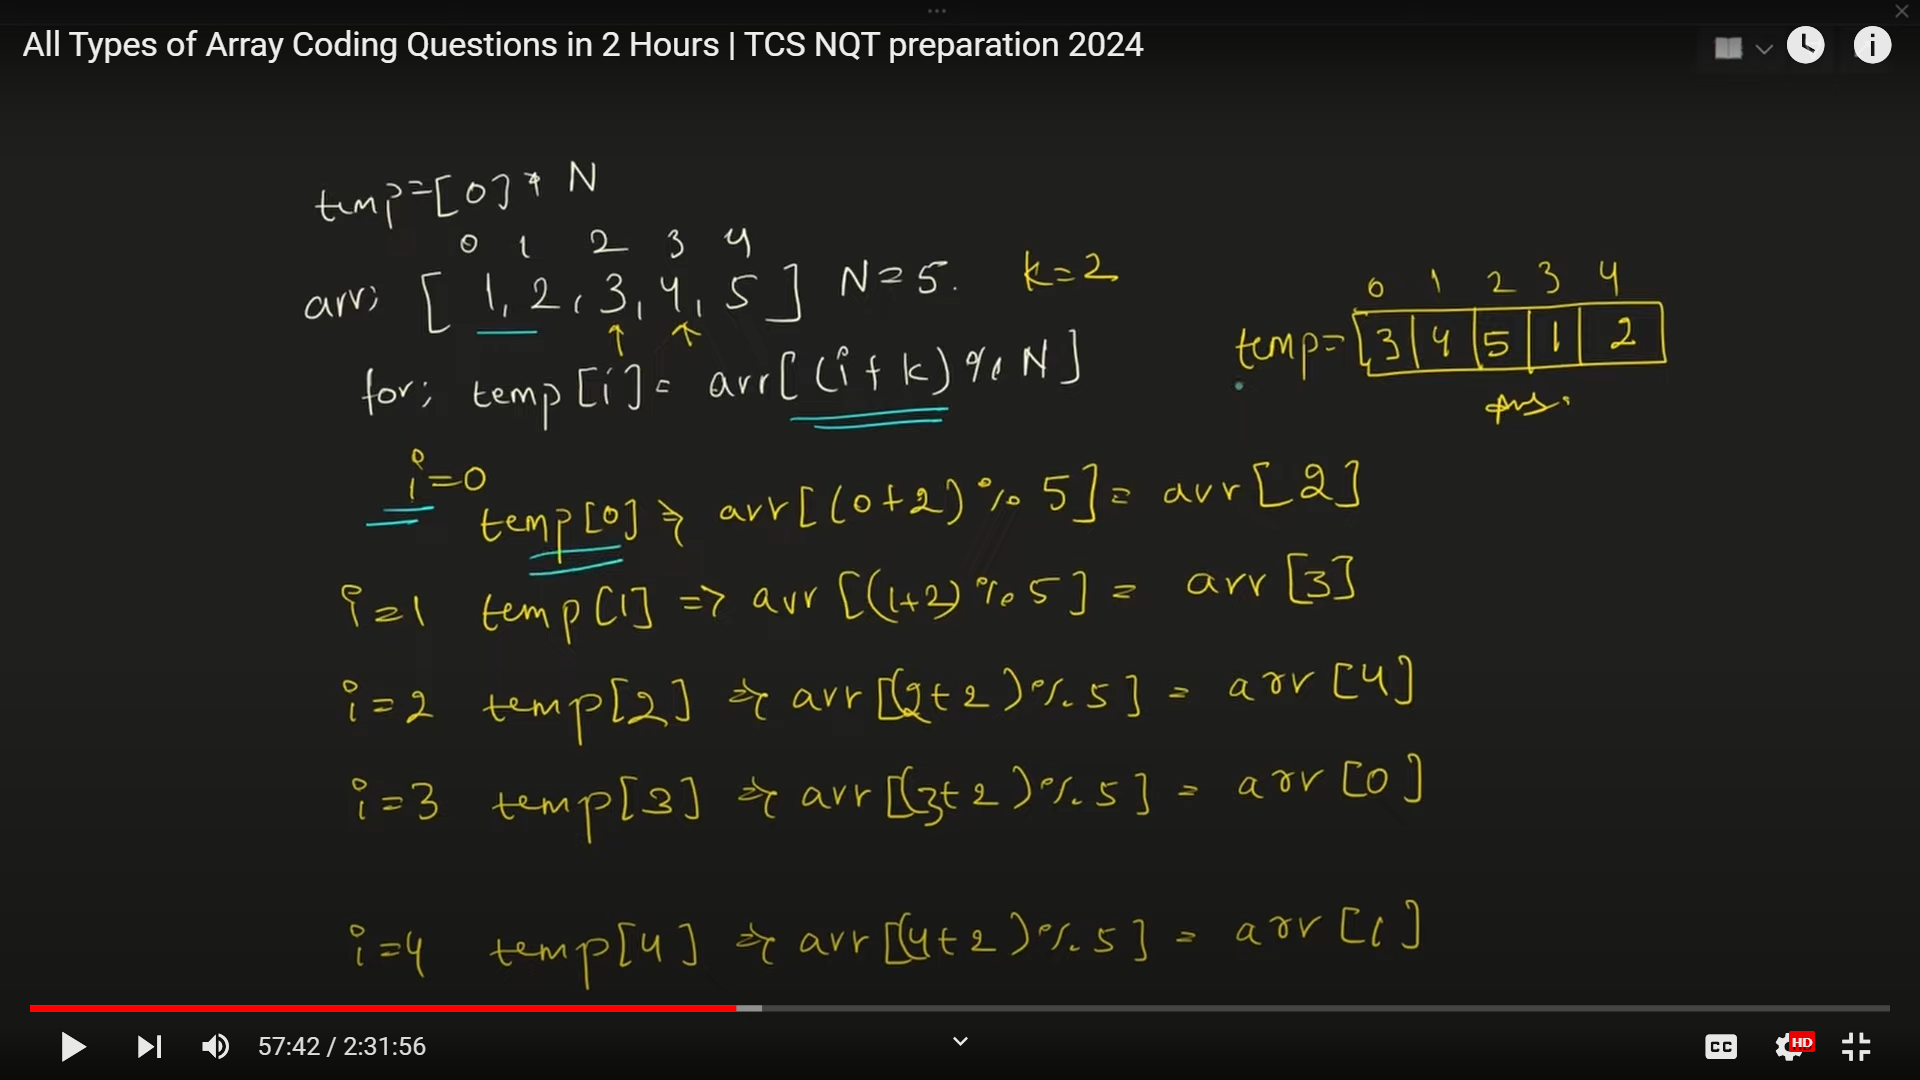 All Types of Array Coding Questions in 2 Hours | TCS NQT preparation 2024
temp=[0]* N
0 1 2 3 4
arr: [ 1, 2, 3, 4, 5 ] N=5. k=2
for: temp[i]= arr[(i+k)%N]
0 1 2 3 4
temp= 3 4 5 1 2
ans.
i=0
temp[0] => arr[(0+2)%5]= arr[2]
i=1 temp[1] => arr[(1+2)%5] = arr[3]
i=2 temp[2] => arr[(2+2)%5] = arr[4]
i=3 temp[3] => arr[(3+2)%5] = arr[0]
i=4 temp[4] => arr[(4+2)%5] = arr[1]
57:42 / 2:31:56
CC HD